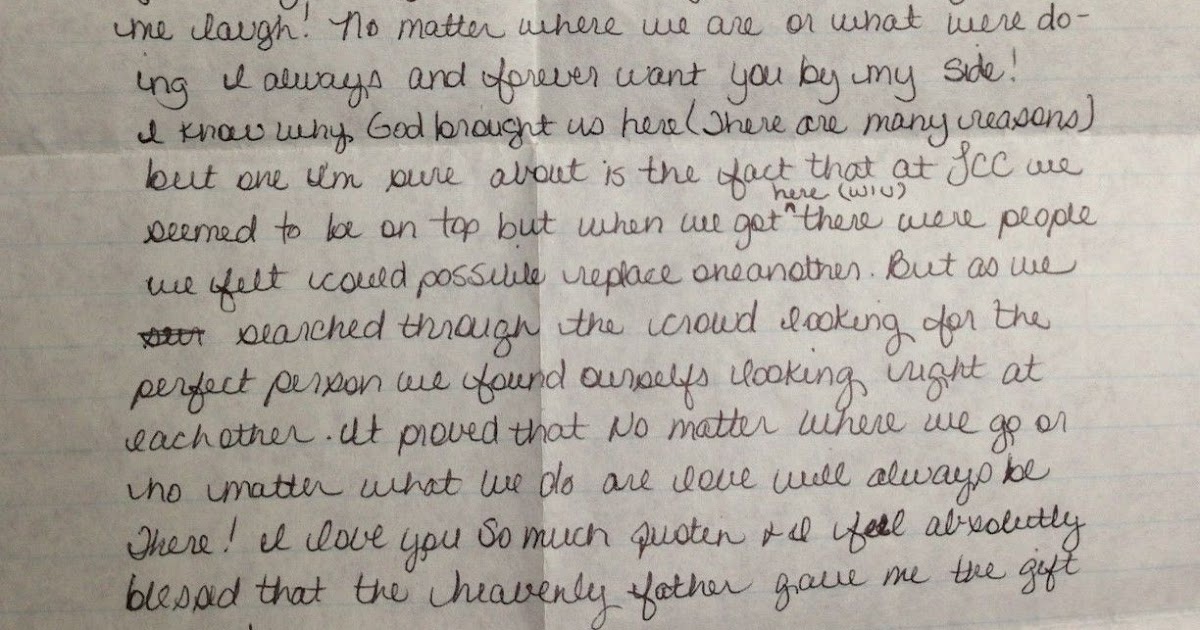 me laugh! No matter where we are or what were do-
ing I always and forever want you by my side!
I know why God brought us here (There are many reasons)
but one I'm sure about is the fact that at JCC we
here (WIU)
seemed to be on top but when we got ^ there were people
we felt could possible replace oneanother. But as we
searched through the crowd looking for the
perfect person we found ourselfs looking right at
eachother. It proved that No matter where we go or
no matter what we do are love will always be
There! I love you So much Quoten + I feel absolutly
blessed that the heavenly father gave me the gift